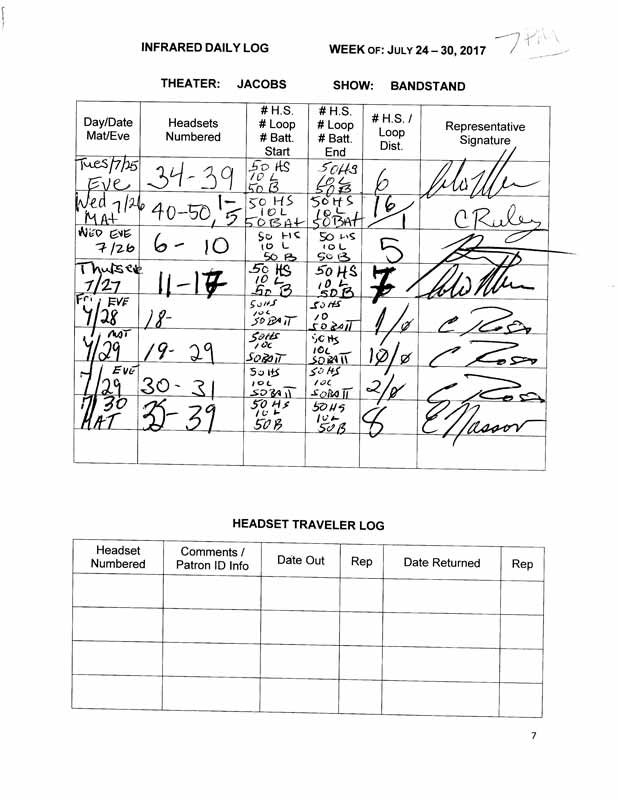 INFRARED DAILY LOG WEEK OF: JULY 24 – 30, 2017 7 PM
THEATER: JACOBS SHOW: BANDSTAND
Day/Date Mat/Eve Headsets Numbered # H.S. # Loop # Batt. Start # H.S. # Loop # Batt. End # H.S. / Loop Dist. Representative Signature
Tues/7/25 Eve 34-39 50 HS 10 L 50 B 50HS 10 L 50 B 6
Wed 7/26 MAT 40-50, 1-5 50 HS 10 L 50 BAT 50HS 10 L 50 BAT 16/1 C Ruley
WED EVE 7/26 6-10 50 HS 10 L 50 B 50 HS 10 L 50 B 5
7/27 11-17 50 HS 10 L 50 B 50 HS 10 L 50 B 7
Fri EVE 7/28 18- 50HS 10L 50 BATT 50HS 10 50 BATT 1/0 C Ross
MAT 7/29 19-29 50HS 10L 50BATT 50HS 10L 50BATT 10/0 C Ross
EVE 7/29 30-31 50HS 10L 50BATT 50HS 10L 50BATT 2/0 C Ross
7/30 MAT 39 50 HS 10 L 50 B 50 HS 10 L 50 B 8 E Nassor
HEADSET TRAVELER LOG
Headset Numbered Comments / Patron ID Info Date Out Rep Date Returned Rep
7